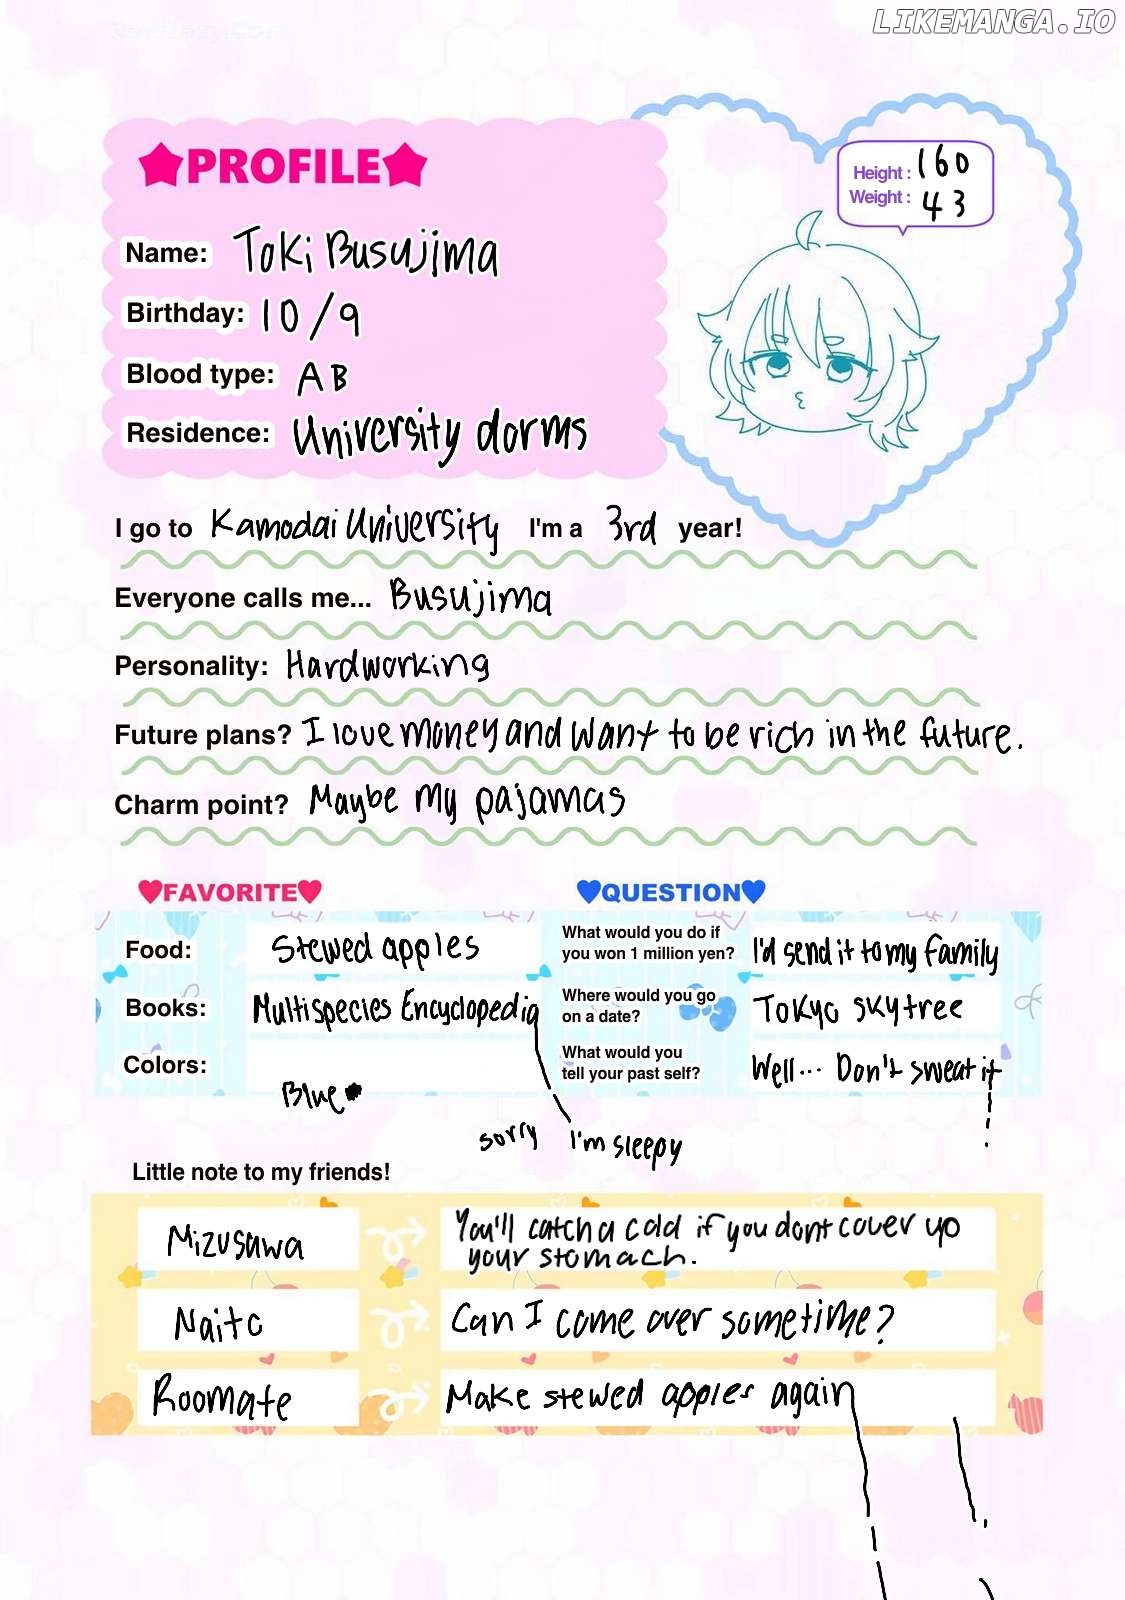 LIKEMANGA.IO
★PROFILE★
Height: 160
Weight: 43
Name: Toki Busujima
Birthday: 10/9
Blood type: AB
Residence: University dorms
I go to Kamodai University I'm a 3rd year!
Everyone calls me... Busujima
Personality: Hardworking
Future plans? I love money and want to be rich in the future.
Charm point? Maybe my pajamas
♥FAVORITE♥
Food: Stewed apples
Books: Multispecies Encyclopedia
Colors: Blue
sorry I'm sleepy
♥QUESTION♥
What would you do if
you won 1 million yen? I'd send it to my family
Where would you go
on a date? Tokyo skytree
What would you
tell your past self? Well... Don't sweat it
Little note to my friends!
Mizusawa
You'll catch a cold if you dont cover up
your stomach.
Naito
Can I come over sometime?
Roomate
Make stewed apples again